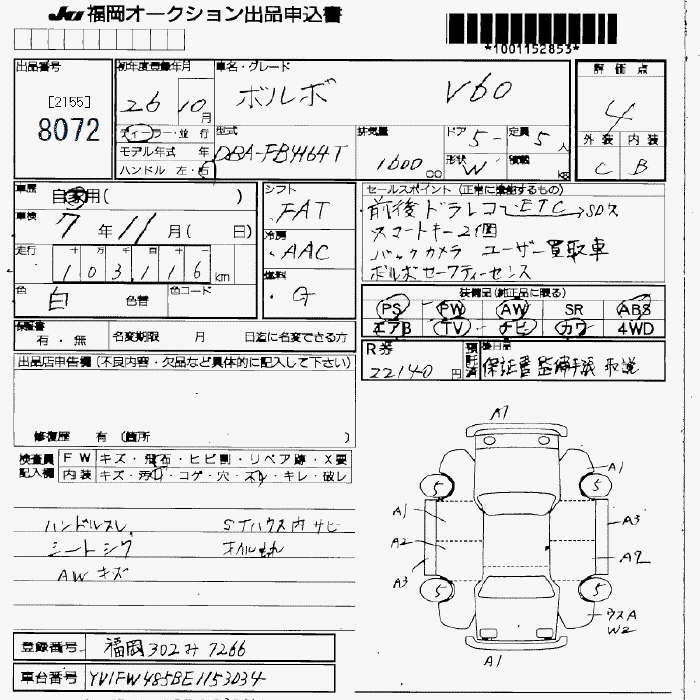 JU福岡オークション出品申込書
*1001152853*
出品番号
[2155]
8072
初年度登録年月
26 10月
車名・グレード
ボルボ V60
評価点
4
外装 内装
C B
ディーラー・並行
モデル年式 年
ハンドル 左・右
型式
DBA-FB4164T
排気量
1600 CC
ドア 5
形状 W
定員 5人
積載 kg
車歴
自家用( )
車検
7年11月( 日)
走行
十 万 千 百 十 一
103116 km
色 白 色替 色コード
シフト
FAT
冷房
AAC
燃料
G
セールスポイント(正常に機能するもの)
前後ドラレコ ETC SDナビ
スマートキー2個
バックカメラ ユーザー買取車
ボルボセーフティーセンス
装備品(純正品に限る)
PS PW AW SR ABS
エアB TV ナビ カワ 4WD
保証書
有・無
名変期限 月 日迄に名変できる方
R券
22140円
預託済
後日品
保証書 整備手帳 取説
出品店申告欄(不良内容・欠品など具体的に記入して下さい)
修復歴 有(箇所 )
検査員記入欄
FW キズ・飛石・ヒビ割・リペア跡・X要
内装 キズ・汚れ・コゲ・穴・スレ・キレ・破レ
ハンドルスレ
シートシワ
AWキズ
STハウス内サビ
オイルもれ
A1
5 5 A1
A1 A3
A2 A2
A3
5 5
ウスA
W2
A1
登録番号 福岡302み7266
車台番号 YV1FW485BE1153034